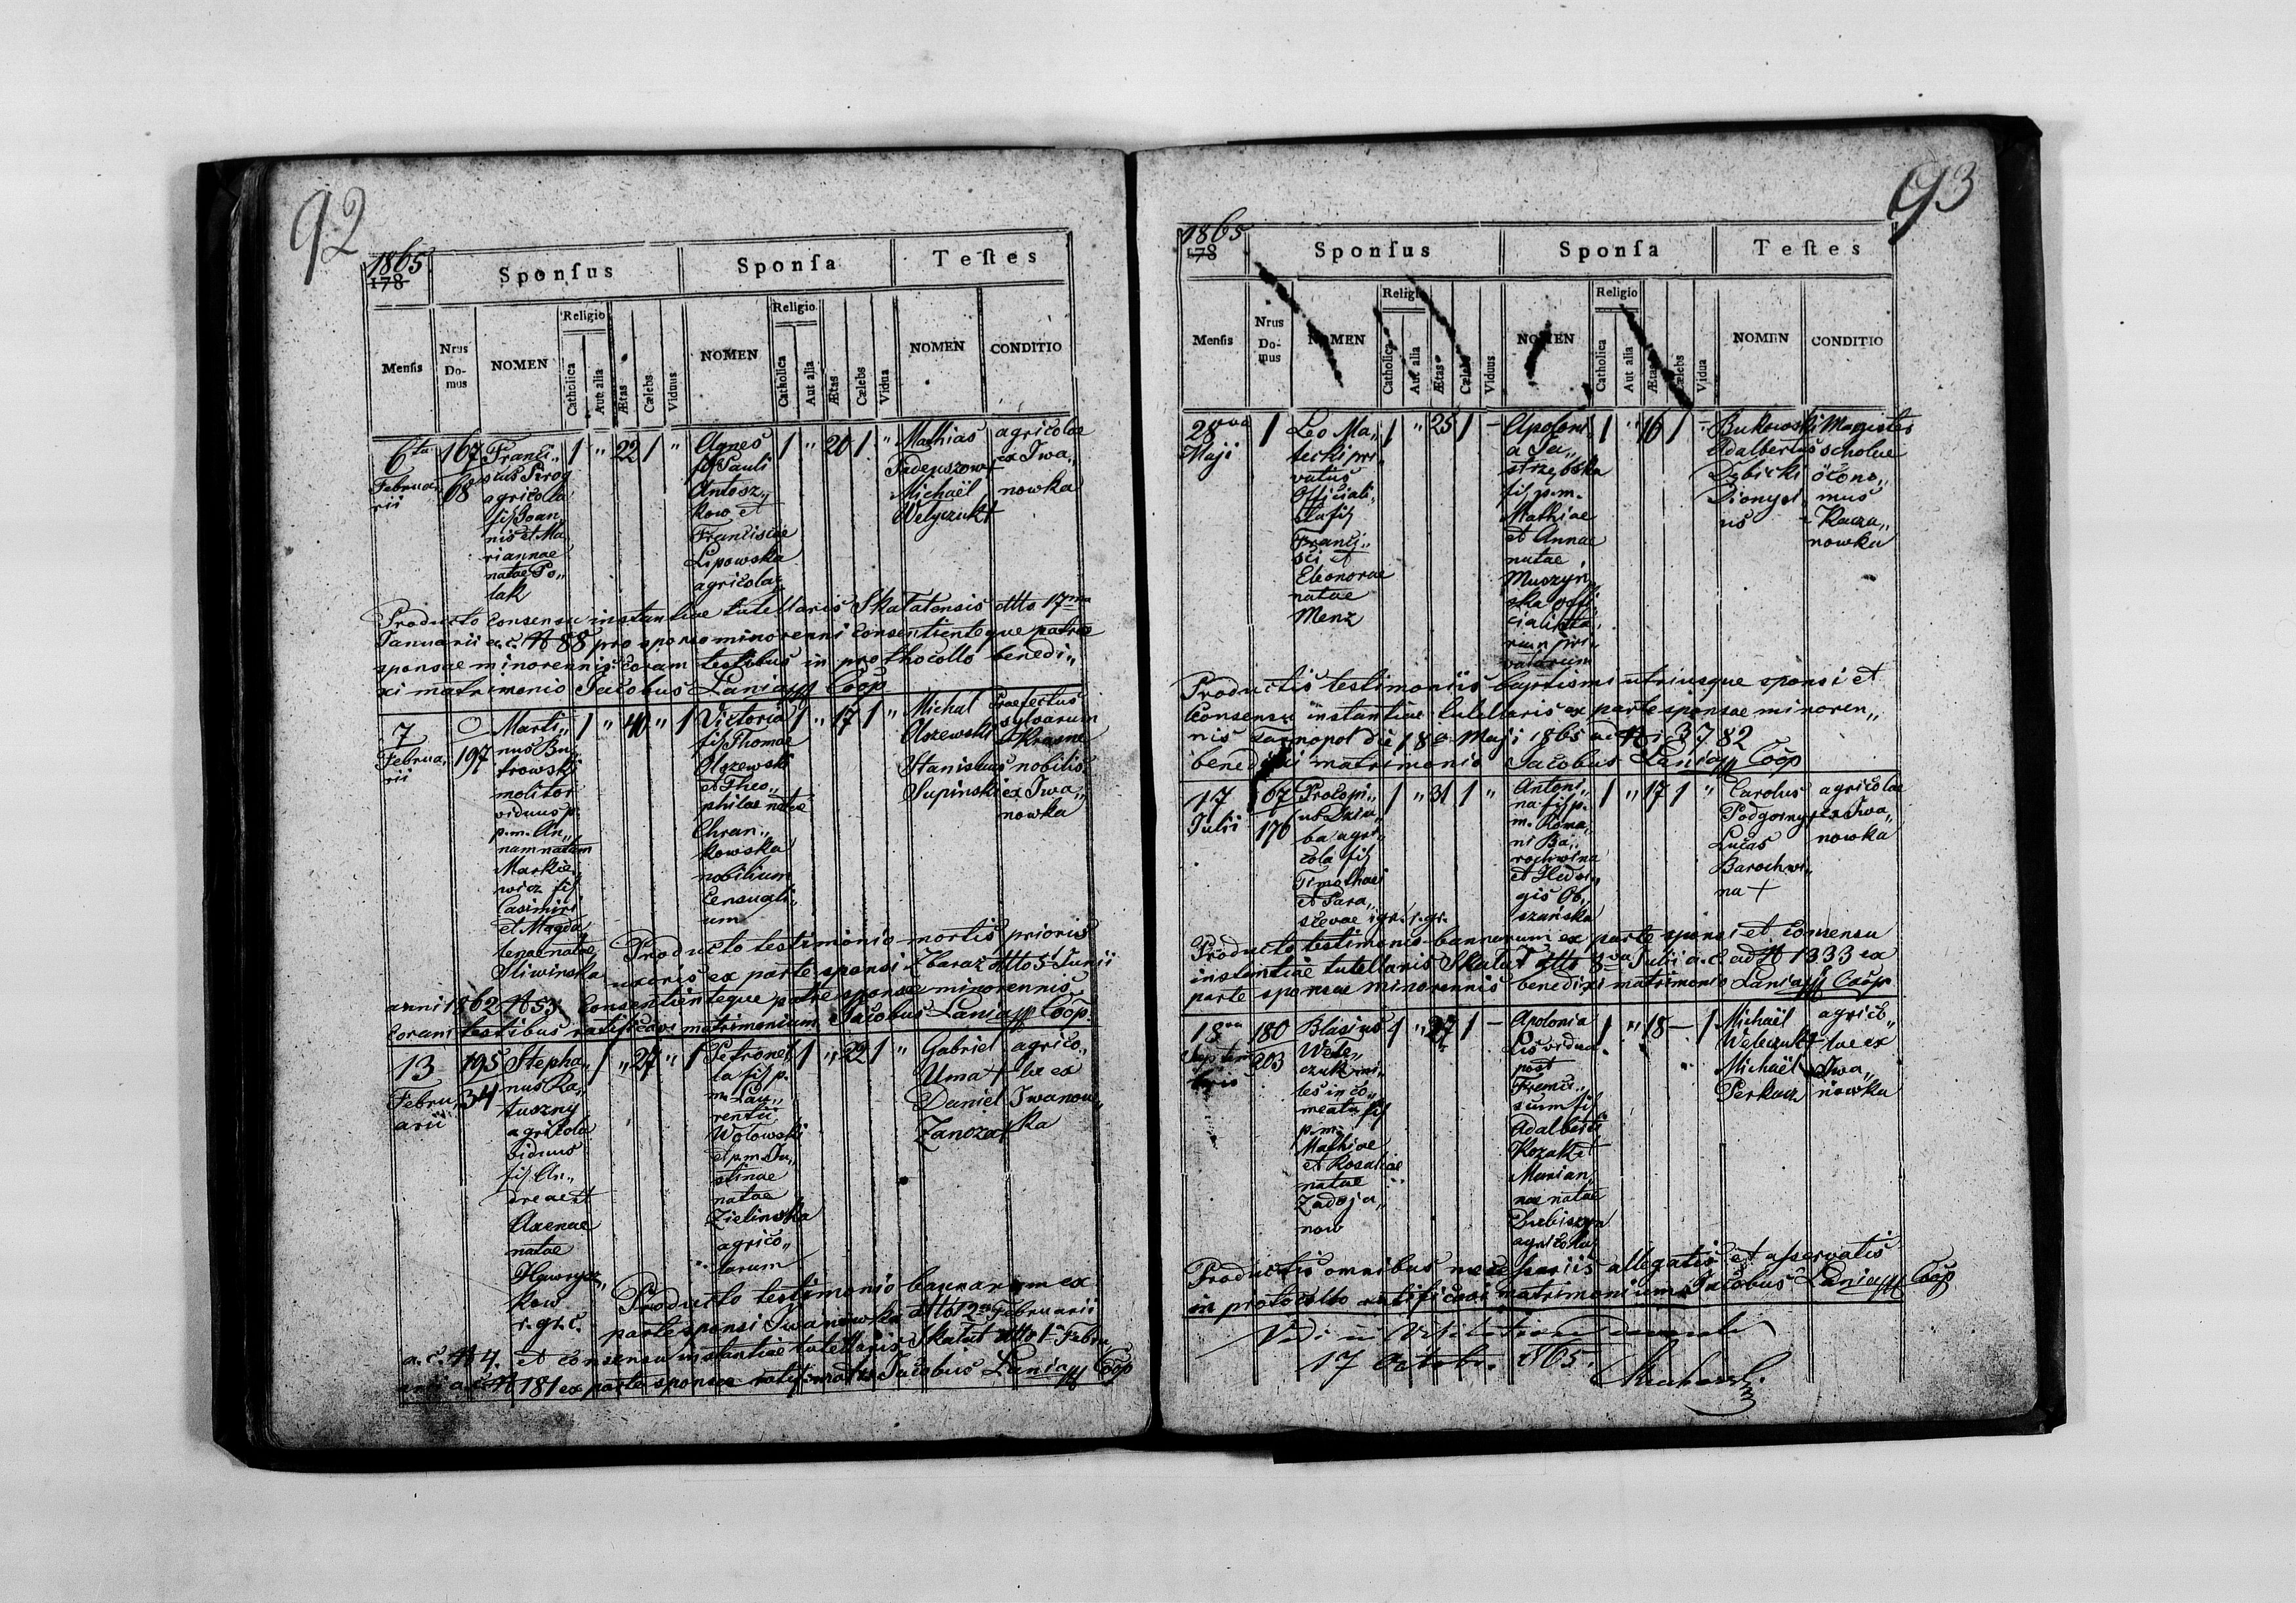 92
1865
178
Sponſus
Sponſa
Teſtes
Menſis
Nrus
Do-
mus
NOMEN
Religio
Catholica
Aut alia
Ætas
Cælebs
Viduus
NOMEN
Religio
Catholica
Aut alia
Ætas
Cælebs
Vidua
NOMEN
CONDITIO
6ta
Februa,,
rii
167
68
Franci,,
scus Pirog
agricola
fil Joan,,
nis et Ma,,
riannae
natae Po,,
lak
1 " 22 1 "
Agnes
fil Pauli
Antosz,,
kow et
Franciscae
Lipowska
agricolar
1 " 20 1 "
Mathias
Tadeuszow +
Michaël
Welyczuk +
agricolae
ex Iwa,,
nowka
Producto consensu instantiae tutellaris Skalatensis dtto 17ma
Januarii a.c. N 88 pro sponso minorenni consentienteque patre
sponsae minorennis coram testibus in prothocollo benedi,,
xi matrimonio Jacobus Lania Coop
7
Februa,,
rii
197
Marti,,
nus Bu,,
trowski
molitor
viduus p.
p.m. An,,
nam natam
Markie,,
wicz fil
Casimiri
et Magda,,
lenae natae
Sliwinska
1 " 40 " 1
Victoria
fil Thomae
Olszewski
et Theo,,
philae natae
Chran,,
kowska
nobilium
Censuali,,
um
1 " 17 1 "
Michal
Olszewski
Stanislaus
Supinski
Praefectus
sylvarum
Krasne
nobilis
ex Iwa,,
nowka
Producto testimonio mortis prioris
uxoris ex parte sponsi Zbaraż dtto 5 Junii
anni 1862 N 53 consentienteque patre sponsae minorennis
coram testibus ratificavi matrimonium Jacobus Lania Coop.
13
Febru,,
arii
195
34
Stepha,,
nus Ra,,
tuszny
agricola
viduus
fil An,,
dreae et
Axenae
natae
Hawrysz,,
kow
r. gr. c.
1 " 27 " 1
Petronel,,
la fil p.
m. Lau,,
rentii
Wolowski
et p.m. Ju,,
stinae
natae
Zielinska
agrico,,
larum
1 " 22 1 "
Gabriel
Uma +
Daniel
Zancza +
agrico,,
lae ex
Iwanow,,
ka
Producto testimonio bannorum ex
parte sponsi Iwanowka dtto 12ma Februarii
a.c. N 4. et consensu instantiae tutellaris Skalat dtto 1 Febru,,
arii a.c. N 181 ex parte sponsae Jacobus Lania Coop
93
1865
178
Sponſus
Sponſa
Teſtes
Menſis
Nrus
Do-
mus
NOMEN
Religio
Catholica
Aut alia
Ætas
Cælebs
Viduus
NOMEN
Religio
Catholica
Aut alia
Ætas
Cælebs
Vidua
NOMEN
CONDITIO
28va
Maji
1
Leo Ma,,
tecki pri,,
vatus
Officiali,,
sta fil
Franci,,
sci et
Eleonorae
natae
Menz
1 " 25 1 –
Apoloni,,
a Ja,,
strzębska
fil p.m.
Mathiae
et Annae
natae
Muszyń,,
ska offi,,
cialista,,
rum pri,,
vatorum
1 " 16 1 –
Bukowski
Adalbertus
Dębicki
Dionysi,,
us
Magister
scholae
öcono,,
mus
Kacza,,
nowka
Productis testimoniis baptismi utriusque sponsi et
Consensu instantiae tutellaris ex parte sponsae minoren,,
nis Tarnopol die 18 Maji 1865 ad N 3782
benedixi matrimonio Jacobus Lania Coop
17
Julii
67
176
Prokopi,,
us Dziu,,
ba agri,,
cola fil
Timothaei
et Para,,
scevae r. gr.
1 " 31 1 "
Antoni,,
na fil p.
m. Roma,,
ni Ba,,
rochwina
et Hedvi,,
gis Ob,,
szańska
1 " 17 1 "
Carolus
Podgorny
Lucas
Barochwi,,
na +
agricolae
ex Iwa,,
nowka
Producto testimonio bannorum ex parte sponsi et consensu
instantiae tutellaris Skalat dtto 8va Julii a.c. ad N 1333 ex
parte sponsae minorennis benedixi matrimonio Lania Coop
18va
Septem
bris
180
203
Blasius
Wele,,
czuk mi,,
les in co,,
meatu fil
p.m.
Mathiae
et Rosaliae
natae
Zadoja,,
now
1 " 27 1 –
Apolonia
Lis vidua
post
fil
Adalberti
Kozak et
Marian,,
nae natae
Dubiszyn
agricolar
1 " 18 – 1
Michaël
Weleczuk +
Michaël
Perkacz
agrico,,
lae ex
Iwa,,
nowka
Productis omnibus necessariis allegatis et asservatis
in protocollo ratificavi matrimonium Jacobus Lania Coop
Vidi in Visitatione Decanali
17 Octobr. 1865.